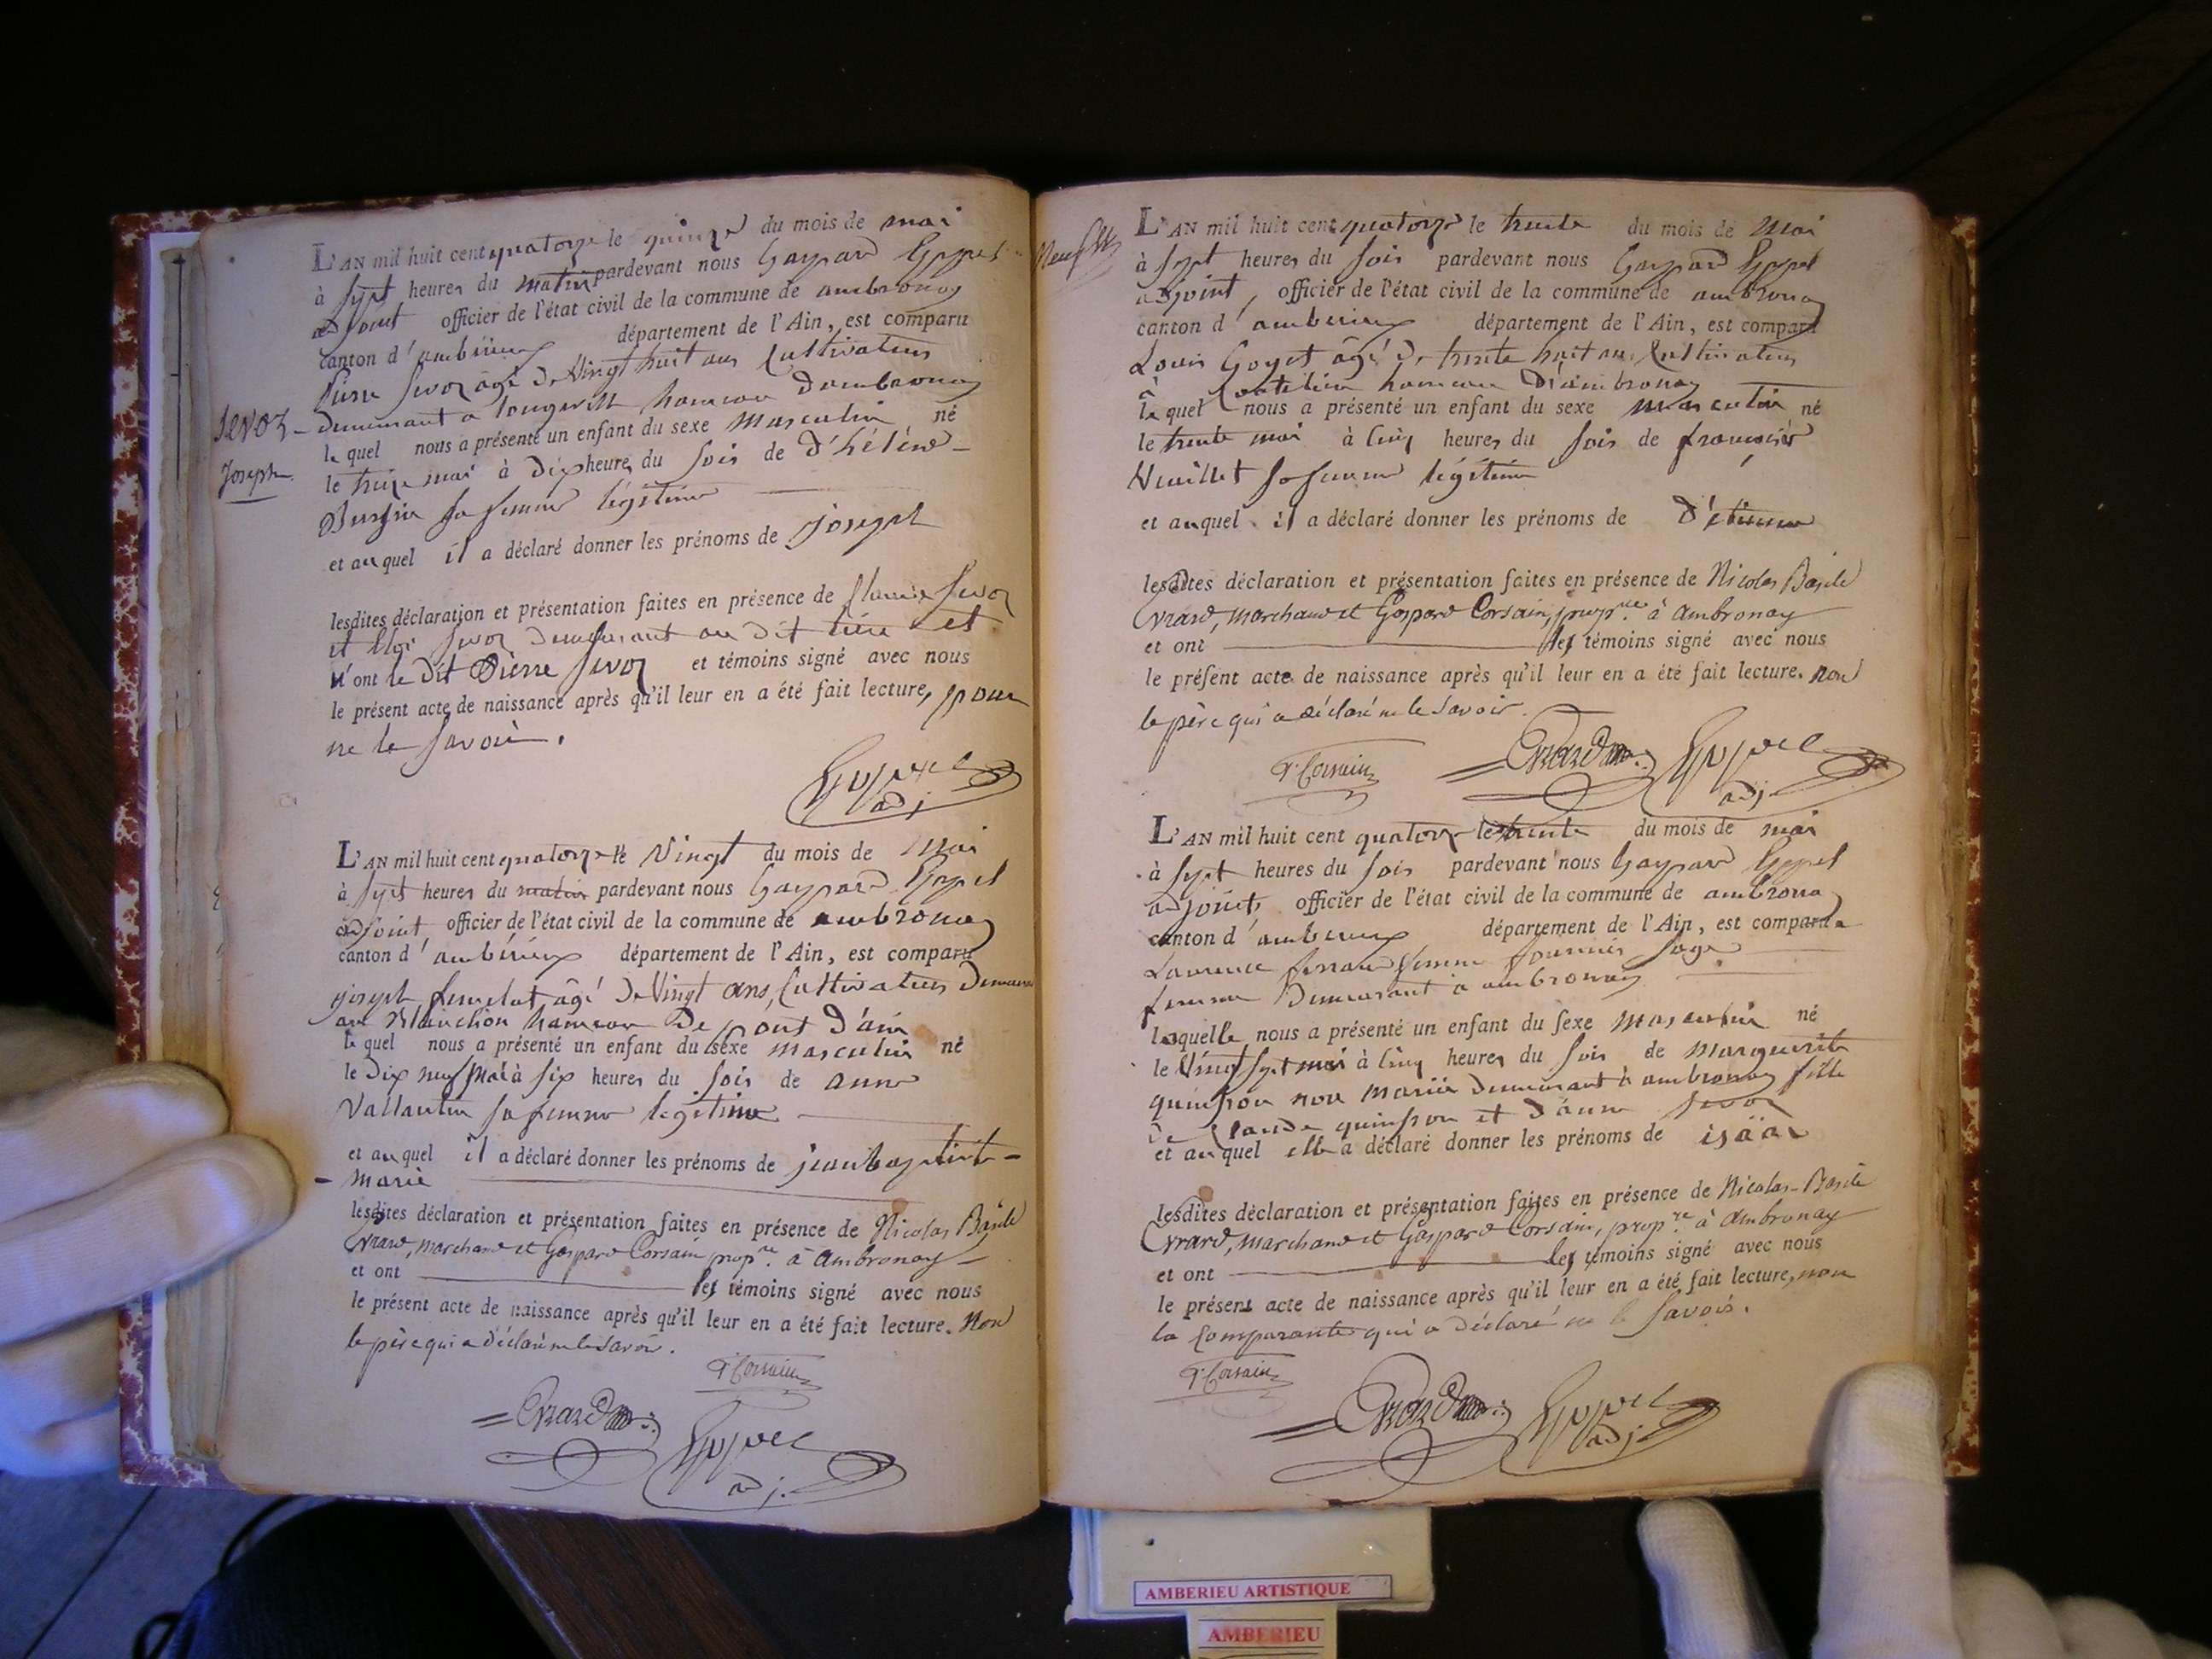 L'AN mil huit cent quatorze le quinze du mois de mai
à sept heures du matin pardevant nous Gaspard Goppel
adjoint officier de l'état civil de la commune de ambronay
canton d'ambérieux département de l'Ain, est comparu
Pierre Sevoz âgé de Vingt huit ans Cultivateur
demeurant a longeville hameau dambronay
Sevoz
le quel nous a présenté un enfant du sexe masculin né
Joseph
le treize mai à dix heures du soir de d'hélène
sa femme légitime
et au quel il a déclaré donner les prénoms de joseph
lesdites déclaration et présentation faites en présence de Sevoz
et Eloi Sevoz demeurant au dit lieu et
n'ont le dit Pierre Sevoz et témoins signé avec nous
le présent acte de naissance après qu'il leur en a été fait lecture, pour
ne le savoir.
adj
L'AN mil huit cent quatorze le Vingt du mois de mai
à sept heures du matin pardevant nous Gaspard Goppel
adjoint officier de l'état civil de la commune de ambronay
canton d'ambérieux département de l'Ain, est comparu
joseph âgé de Vingt ans, Cultivateur
au Blanchon hameau De pont d'ain
le quel nous a présenté un enfant du sexe masculin né
le dix neuf mai à six heures du soir de anne
Vallantin sa femme legitime
et au quel il a déclaré donner les prénoms de jean baptiste
marie
lesdites déclaration et présentation faites en présence de Nicolas Basile
Evrard, marchand et Gaspard Corsain propre. à Ambronay
et ont les témoins signé avec nous
le présent acte de naissance après qu'il leur en a été fait lecture. Non
le père qui a déclaré ne le savoir.
G. Corsain
Evrard
adj.
L'AN mil huit cent quatorze le trente du mois de Mai
à sept heures du soir pardevant nous Gaspard Goppel
adjoint, officier de l'état civil de la commune de ambronay
canton d'ambérieux département de l'Ain, est comparu
Louis Goyet âgé de trente huit ans Cultivateur
à hameau D'ambronay
le quel nous a présenté un enfant du sexe masculin né
le trente mai à cinq heures du soir de françoise
sa femme légitime
et au quel il a déclaré donner les prénoms de D'étienne
lesdites déclaration et présentation faites en présence de Nicolas Basile
Evrard, marchand et Gaspard Corsain, propre à Ambronay
et ont les témoins signé avec nous
le présent acte de naissance après qu'il leur en a été fait lecture. non
le père qui a déclaré ne le savoir.
G. Corsain
Evrard
adj.
L'AN mil huit cent quatorze le trente du mois de mai
à sept heures du soir pardevant nous Gaspard Goppel
adjoint, officier de l'état civil de la commune de ambronay
canton d'ambérieux département de l'Ain, est comparue
Laurence femme Fournier sage
femme demeurant à ambronay
laquelle nous a présenté un enfant du sexe masculin né
le Vingt sept mai à cinq heures du soir de marguerite
quinson non mariée demeurant à ambronay fille
de Claude quinson et d'anne Sevoz
et au quel elle a déclaré donner les prénoms de isäac
lesdites déclaration et présentation faites en présence de Nicolas-Basile
Evrard, marchand et Gaspard Corsain, propre. à Ambronay
et ont les témoins signé avec nous
le présent acte de naissance après qu'il leur en a été fait lecture, non
la Comparante qui a déclaré ne le savoir.
G. Corsain
Evrard
adj.
AMBERIEU ARTISTIQUE
AMBERIEU